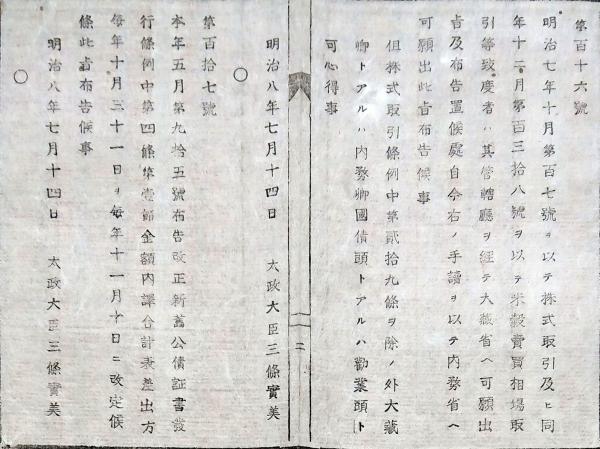 第百十六號
明治七年十月第百七號ヲ以テ株式取引及ヒ同
年十二月第百三拾八號ヲ以テ米穀賣買相場取
引等致度者ハ其管轄廳ヲ經テ大藏省ヘ可願出
旨及布告置候處自今右ノ手續ヲ以テ内務省ヘ
可願出此旨布告候事
但株式取引條例中第貳拾九條ヲ除ノ外大藏
卿トアルハ内務卿國債頭トアルハ勸業頭ト
可心得事
明治八年七月十四日 太政大臣三條實美
二
○
第百拾七號
本年五月第九拾五號布告改正新舊公債証書發
行條例中第四條第壹節金額内譯合計表差出方
每年十月三十一日ヲ每年十一月十日ニ改定候
條此旨布告候事
明治八年七月十四日 太政大臣三條實美
○